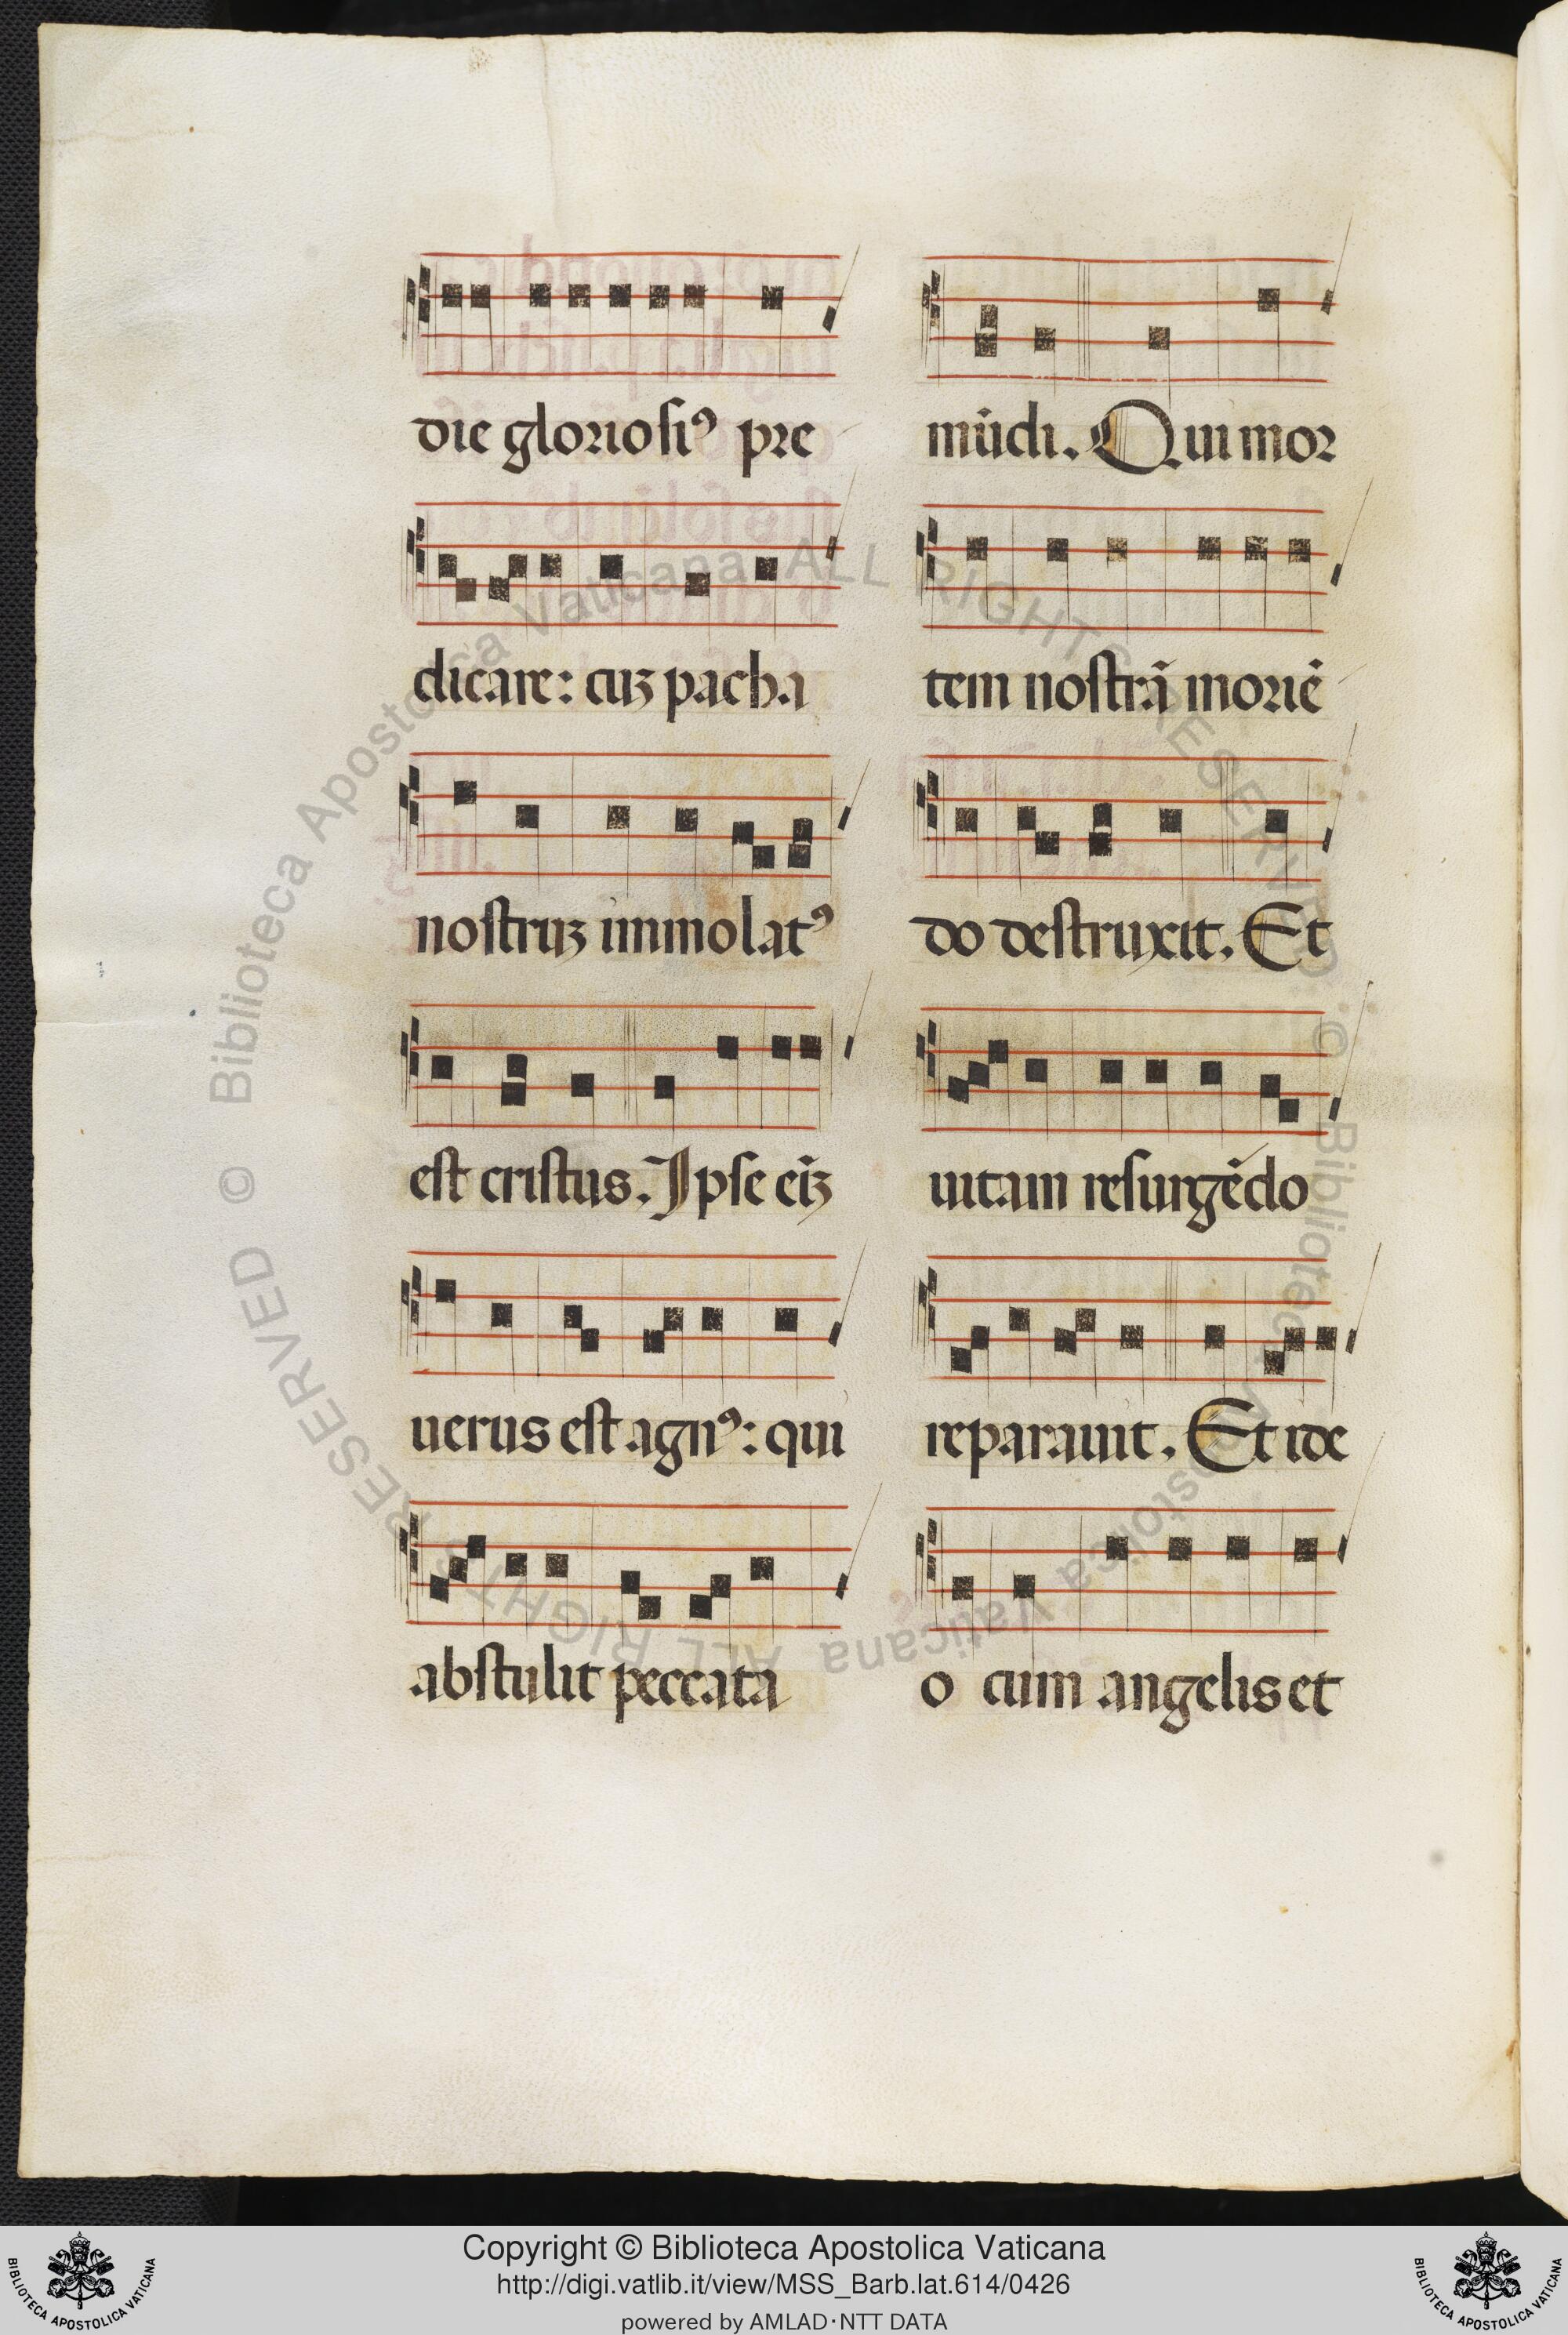 die gloriosiꝯ pre
dicare: cuꝫ pacha
nostruꝫ immolatꝯ
est cristus. Ipse eiꝫ
uerus est agnꝯ: qui
abstulit peccata
mūdi. Qui mor
tem nostrā moriē
do destruxit. Et
uitam resurgēdo
reparauit. Et ide
o cum angelis et
© Biblioteca Apostolica Vaticana ALL RIGHTS RESERVED
© Biblioteca Apostolica Vaticana ALL RIGHTS RESERVED
Copyright © Biblioteca Apostolica Vaticana
http://digi.vatlib.it/view/MSS_Barb.lat.614/0426
powered by AMLAD·NTT DATA
BIBLIOTECA APOSTOLICA VATICANA
BIBLIOTECA APOSTOLICA VATICANA